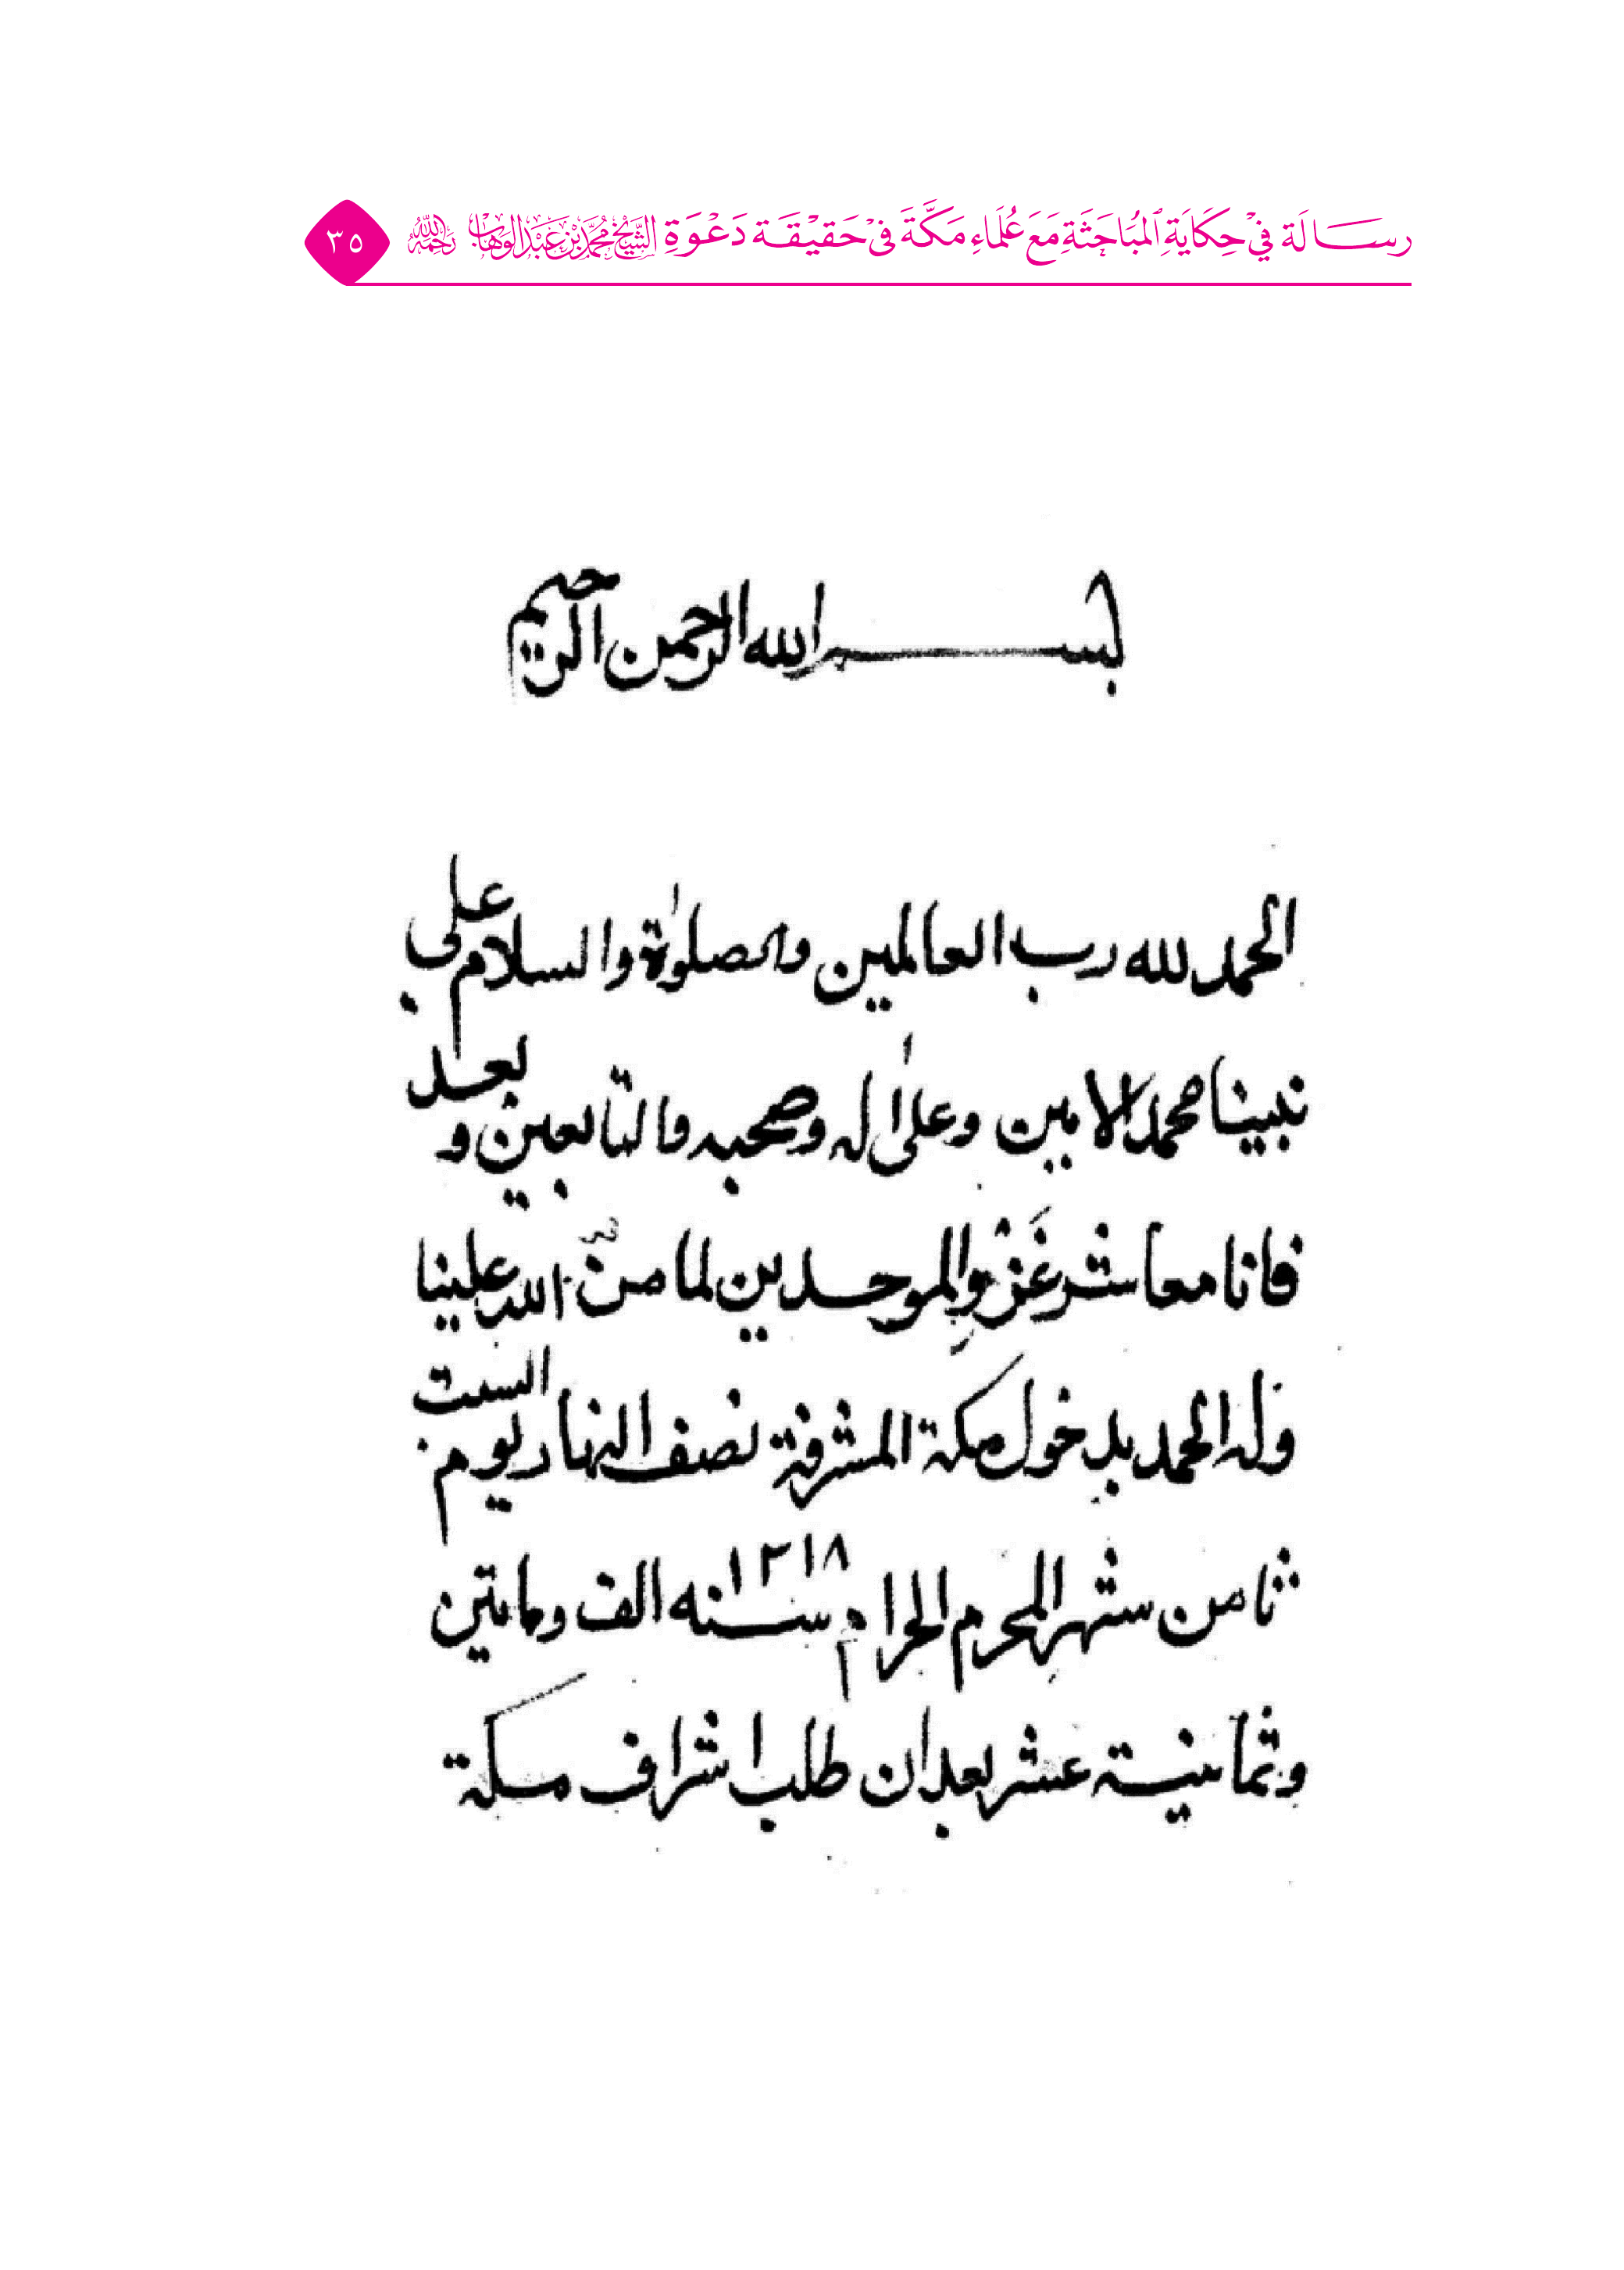 رسالة في حكاية المباحثة مع علماء مكة في حقيقة دعوة الشيخ محمد بن عبد الوهاب رحمه الله ٣٥
بسم الله الرحمن الرحيم
الحمد لله رب العالمين والصلوٰة والسلام على
نبينا محمد الامين وعلىٰ اله وصحبه والتابعين وبعد
فانا معاشر غَزْوِ الموحدين لما منّ الله علينا
وله الحمد بدخول مكة المشرفة نصف النهار يوم السبت
ثامن شهر المحرم الحرام سنه ١٢١٨ الف ومايتين
وثمانية عشر بعد ان طلب اشراف مكة